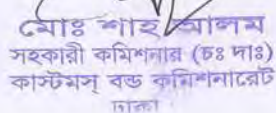 মোঃ শাহ আলম
সহকারী কমিশনার (চঃ দাঃ)
কাস্টমস্ বন্ড কমিশনারেট
ঢাকা